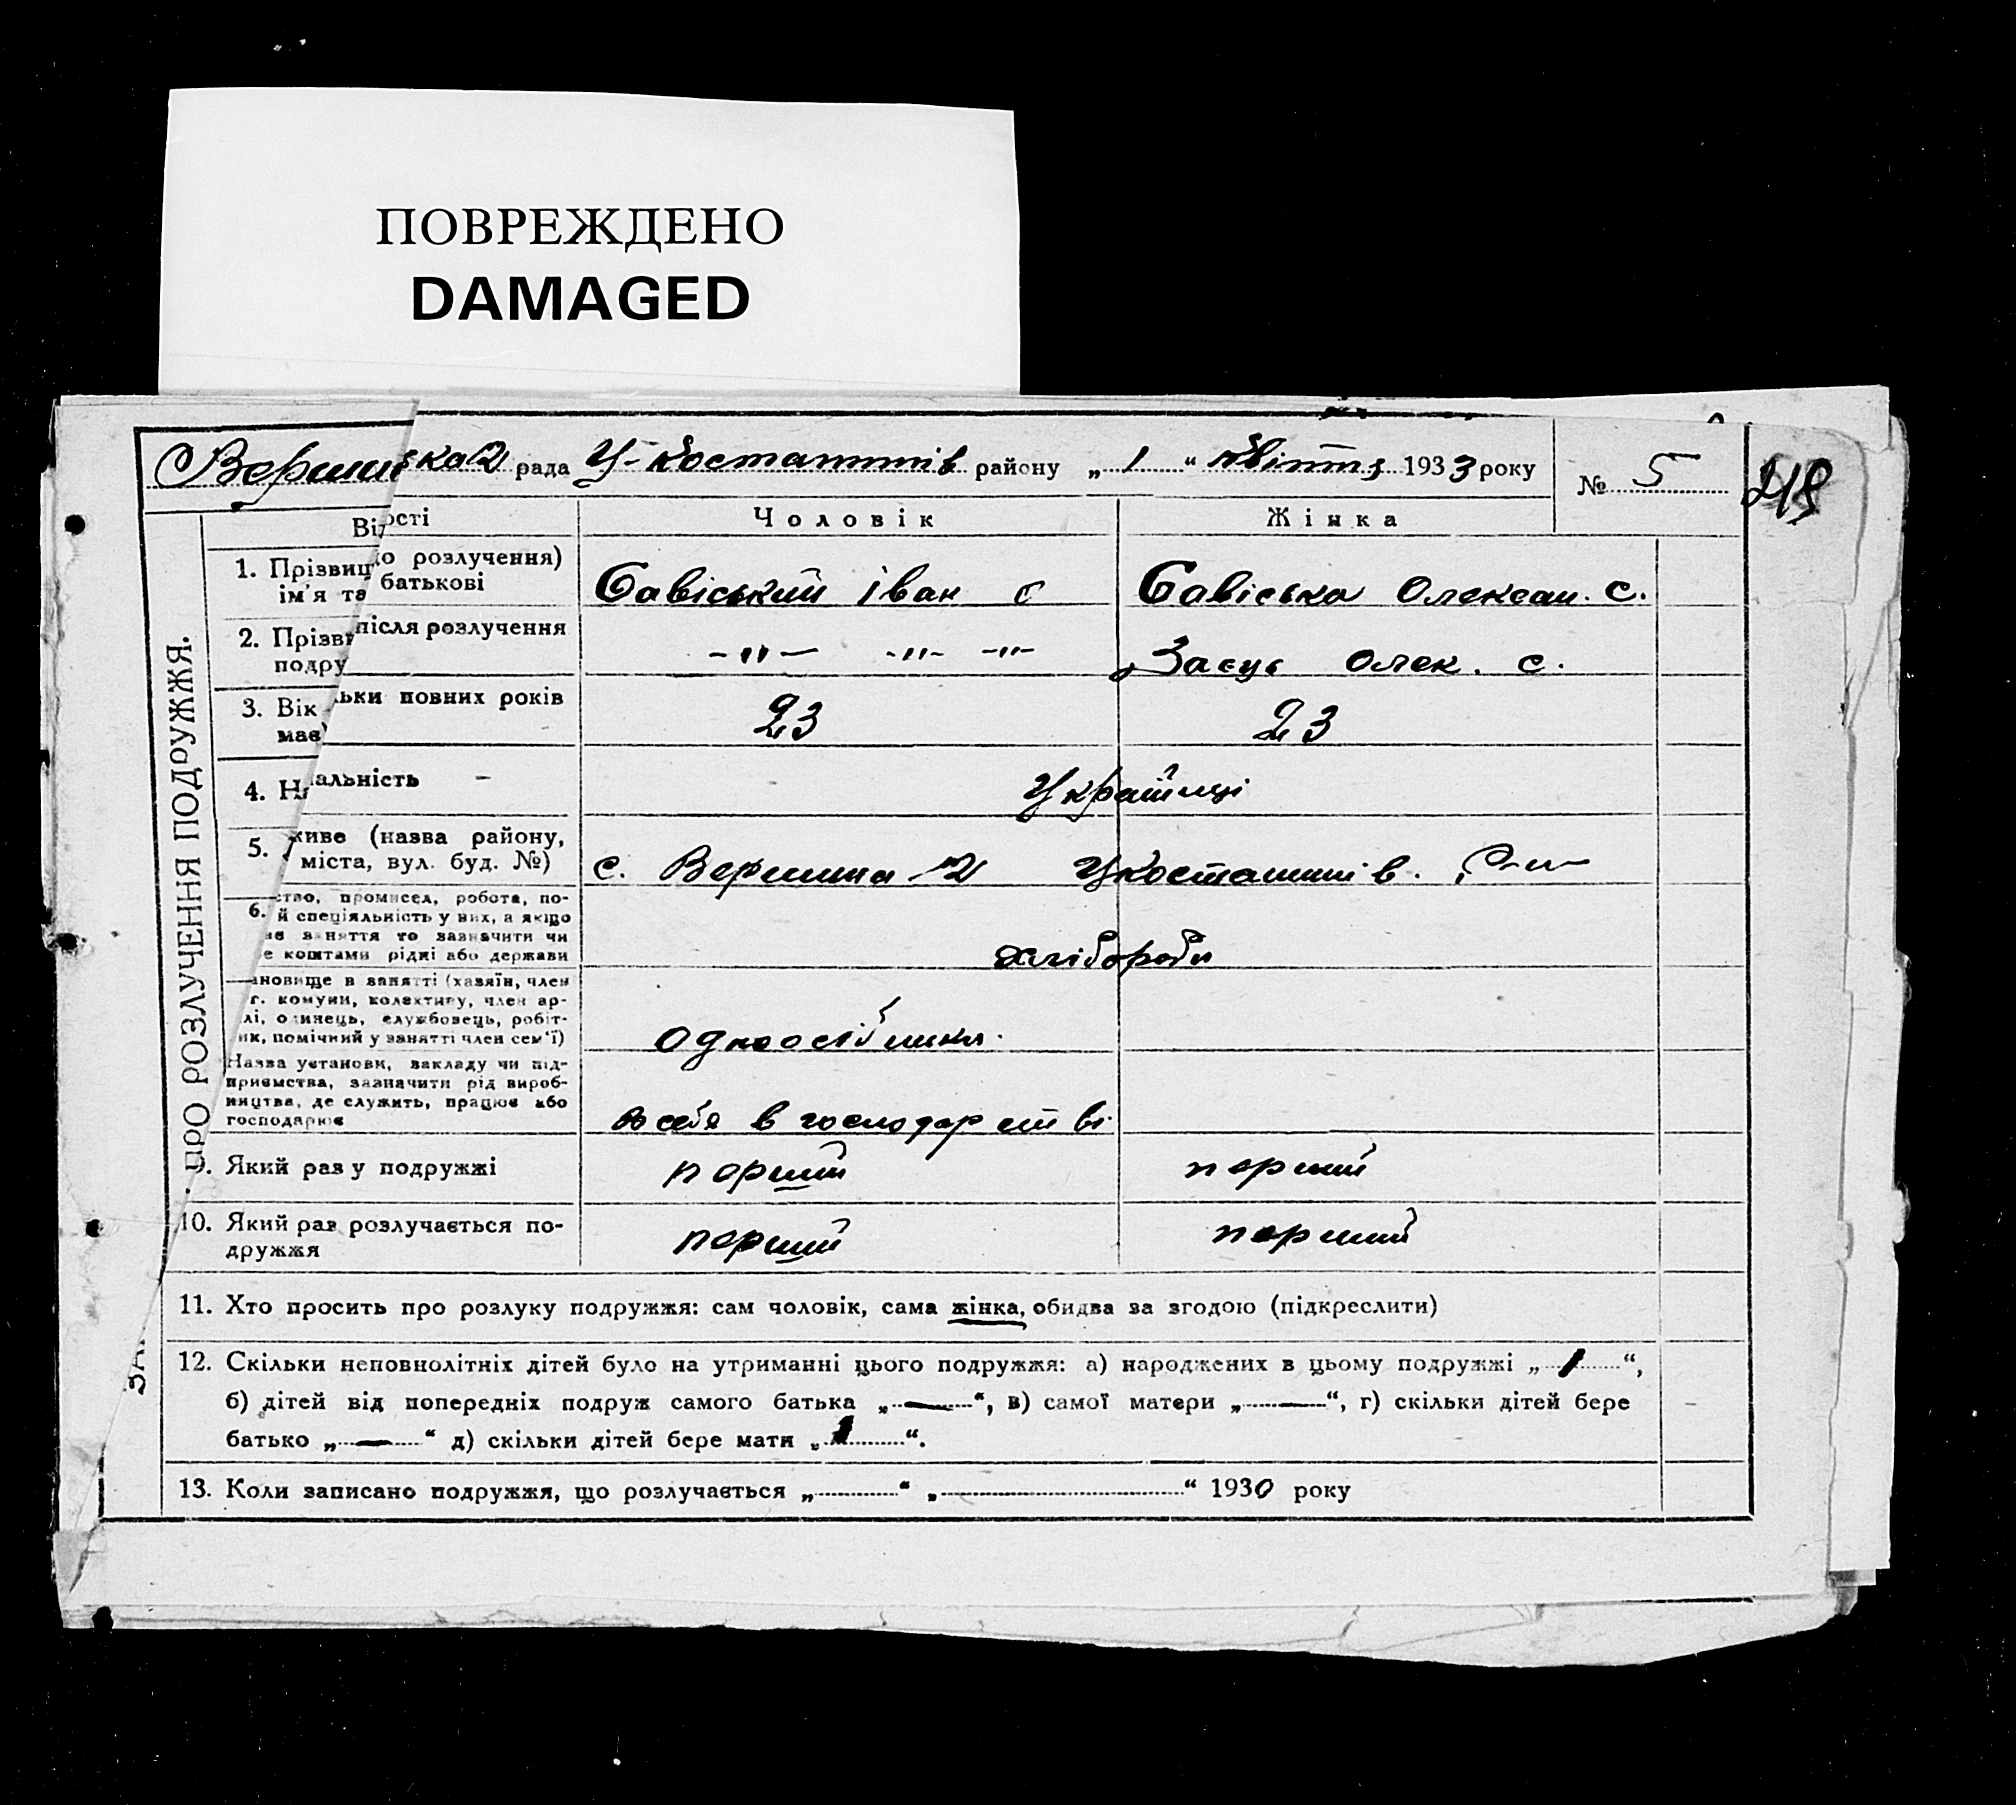 ПОВРЕЖДЕНО
DAMAGED
рада У-Костянтинів району „ 1 “ квітня 1933 року № 5
219
ПРО РОЗЛУЧЕННЯ ПОДРУЖЖЯ.
Від ості Чоловік Жінка
1. Прізвищ о розлучення)
ім'я та батькові Савіський Іван С Савіська Олексан. С.
2. Прізв після розлучення
подру -"- -"- -"- Заєць Олек. С.
3. Вік ьки повних років
має 23 23
4. На альність - Українці
5. живе (назва району,
міста, вул. буд. №) с. Вершина 2 У Костянтинів.
6. ство, промисел, робота, по-
й спеціяльність у них, а якщо
не заняття то зазначити чи
е коштами рідні або держави хлібороби
ановище в занятті (хазяїн, член
г. комуни, колективу, член ар-
лі, одинець, службовець, робіт-
ик, помічний у занятті член сем'ї) одноосібники.
Назва установи, закладу чи під-
приємства, зазначити рід вироб-
ництва, де служить, працює або
господарює в господарстві
9. Який раз у подружжі перший перший
10. Який раз розлучається по-
дружжя перший перший
11. Хто просить про розлуку подружжя: сам чоловік, сама жінка, обидва за згодою (підкреслити)
12. Скільки неповнолітніх дітей було на утриманні цього подружжя: а) народжених в цьому подружжі „ 1 “,
б) дітей від попередніх подруж самого батька „ — “, в) самої матери „ — “, г) скільки дітей бере
батько „ — “ д) скільки дітей бере мати „ 1 “.
13. Коли записано подружжя, що розлучається „ “ „ “ 1930 року